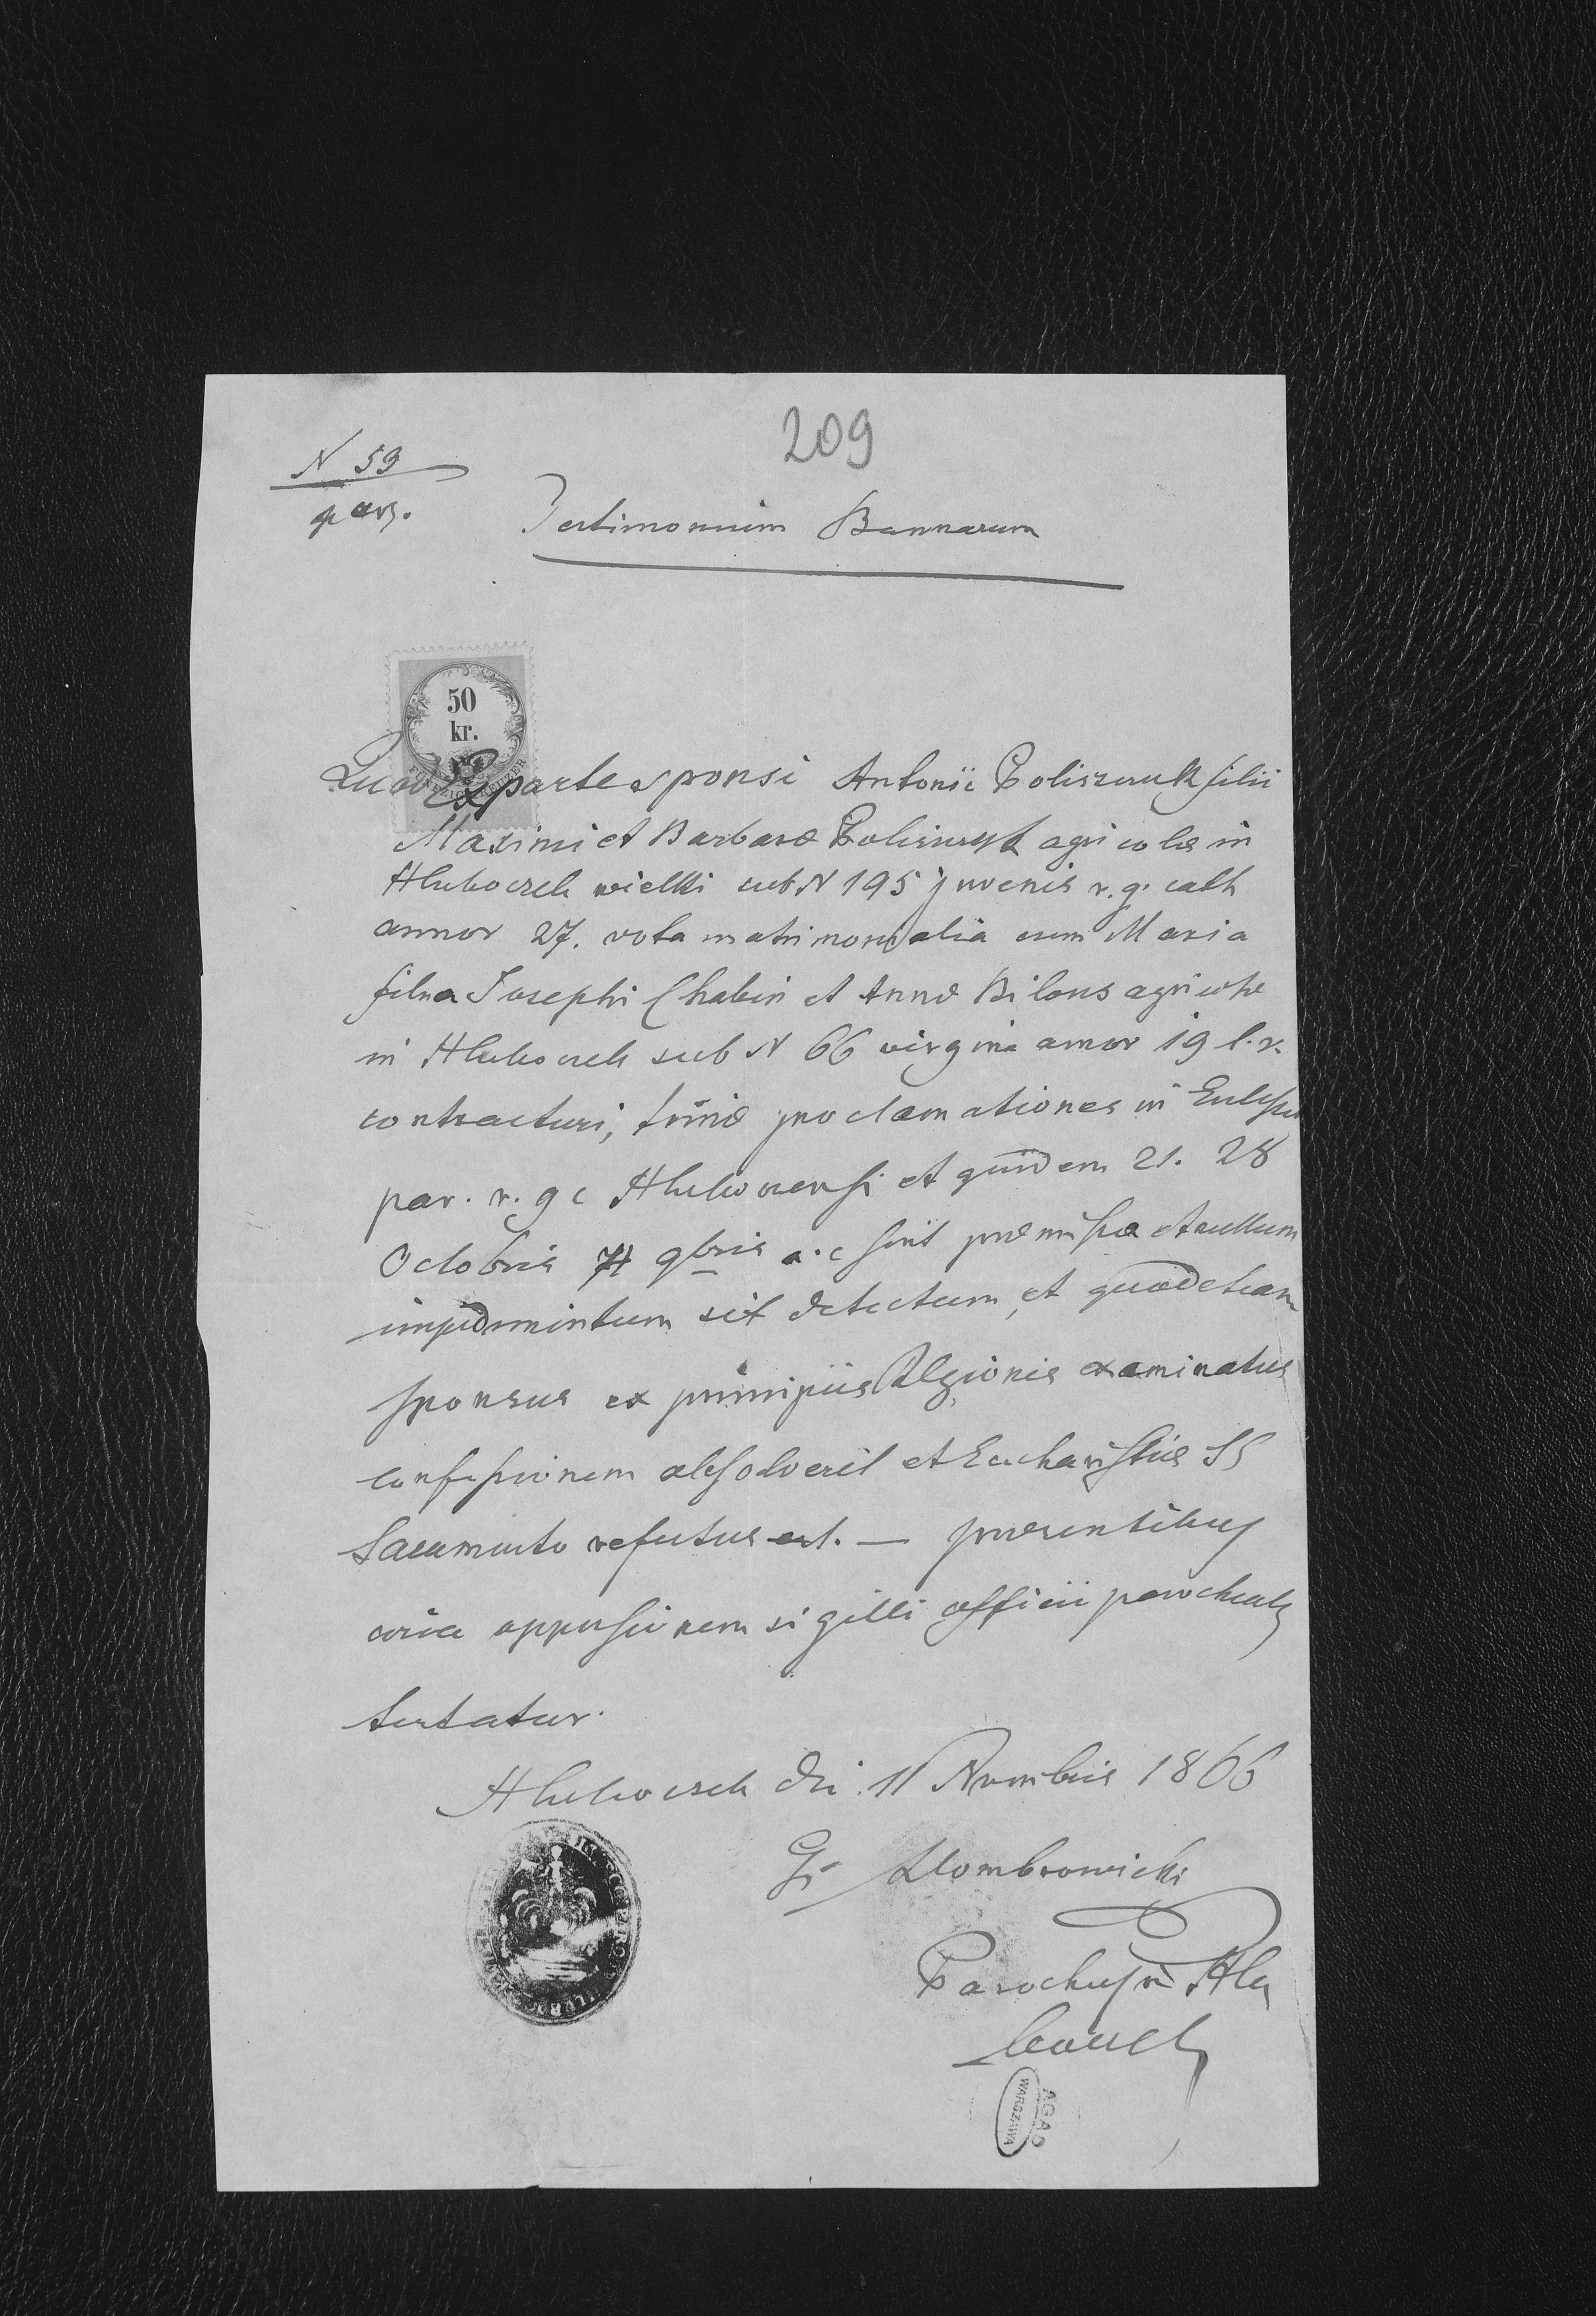 209
N 59
par.
Testimonium Bannarum
50
kr.
Quod Ex parte sponsi Antonii Poliszczuk filii
Maximi et Barbara Poliszczuk agricolæ in
Hluboczek wielki sub N 195 juvenis r. g. cath
annor 27. vota matrimonialia cum Maria
filia Josephi Chabin et Annæ Bilous agricolæ
in Hluboczek sub N 66 virgine annor 19 l. r.
contracturi, trinæ proclamationes in Ecclesia
par. r. g c Hluboczensi et quidem 21. 28
Octobris 4 9bris a. c sint præmissæ et nullum
impedimintum sit detectum, et quod etiam
sponsus ex principiis Religionis examinatus
confessionem absolverit et Eucharistiæ SS
Sacramento refectus est. — præsentibus
appressionem sigilli officii parochialis
testatur.
Hluboczek die 11 Novembris 1866
Dombrowicki
Parochus in Hlu
boczek
AGAD
WARSZAWA